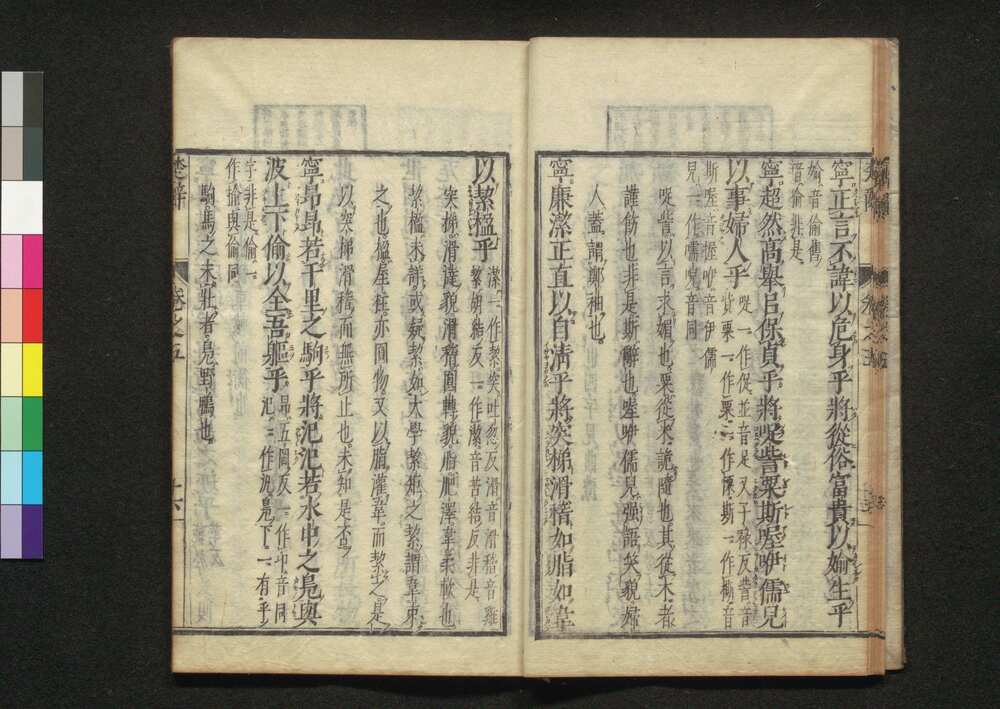 寧正言不諱以危身乎將從俗富貴以婾生乎
婾音偷舊
音偷非是
寧超然高舉㠯保真乎將哫訾栗斯喔咿儒兒
以事婦人乎
哫一作促並音足又子祿反訾音
貲栗一作粟一作慄斯一作㯕音
斯喔音握咿音伊儒
兒一作嚅唲音同
哫訾以言求媚也栗從米詭隨也其從木者
謹飭也非是斯辭也喔咿儒兒强語笑貌婦
人蓋謂鄭袖也
寧廉潔正直以自清乎將突梯滑稽如脂如韋
以潔楹乎
潔一作絜突吐忽反滑音滑稽音雞
絜胡結反一作潔音苦結反非是
突梯滑澾貌滑稽圓轉貌脂肥澤韋柔軟也
絜楹未詳或疑絜如大學絜矩之絜謂韋束
之也楹屋柱亦圓物又以脂灌韋而絜之是
以突梯滑稽而無所止也未知是否
寧昂昂若千里之駒乎將氾氾若水中之鳧與
波上下偷以全吾軀乎
昂五岡反一作卬音同
氾一作汎鳧下一有乎
字非是偷一
作揄與偷同
駒馬之未壯者鳧野鴨也
楚辭
卷之五
十六